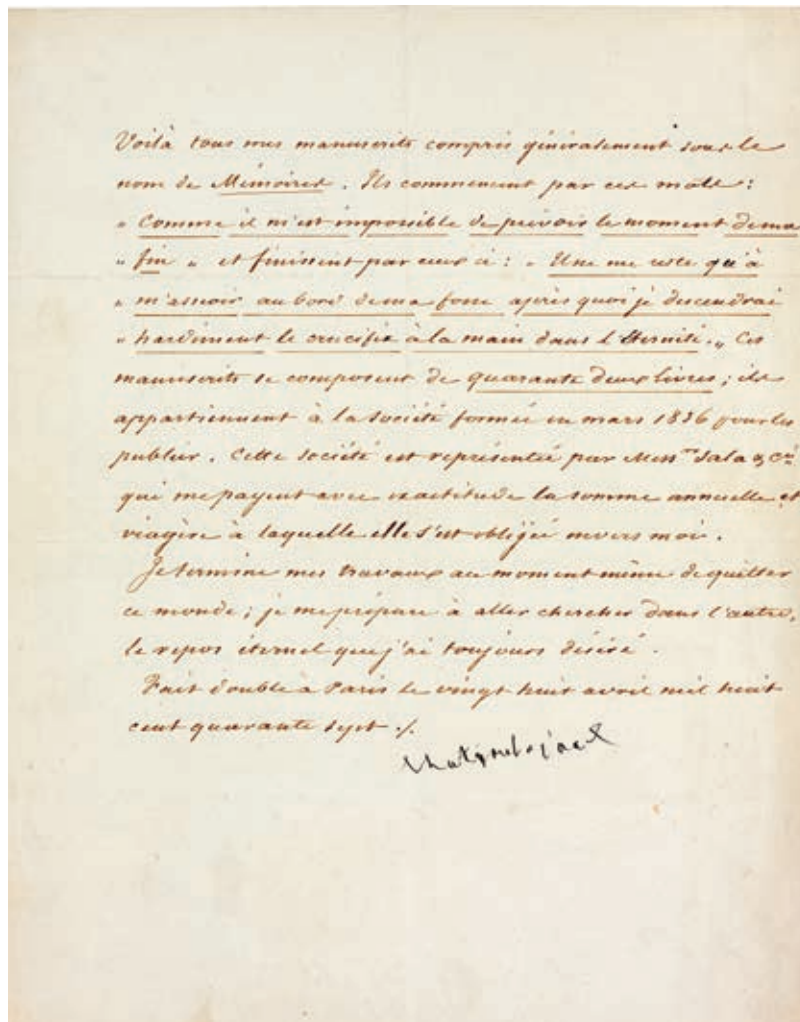 Voilà tous mes manuscrits compris généralement sous le
nom de Mémoires. Ils commencent par ces mots :
« Comme il m'est impossible de prévoir le moment de ma
« fin » et finissent par ceux ci : « Il ne me reste qu'à
« m'asseoir au bord de ma fosse après quoi je descendrai
« hardiment le crucifix à la main dans l'Eternité. » Ces
manuscrits se composent de quarante deux livres ; ils
appartiennent à la société formée en mars 1836 pour les
publier. Cette société est représentée par Mess.rs Sala & Cie
qui me payent avec exactitude la somme annuelle et
viagère à laquelle elle s'est obligée envers moi.
Je termine mes travaux au moment même de quitter
ce monde ; je me prépare à aller chercher dans l'autre,
le repos éternel que j'ai toujours désiré.
Fait double à Paris le vingt huit avril mil huit
cent quarante sept ./.
Chateaubriand